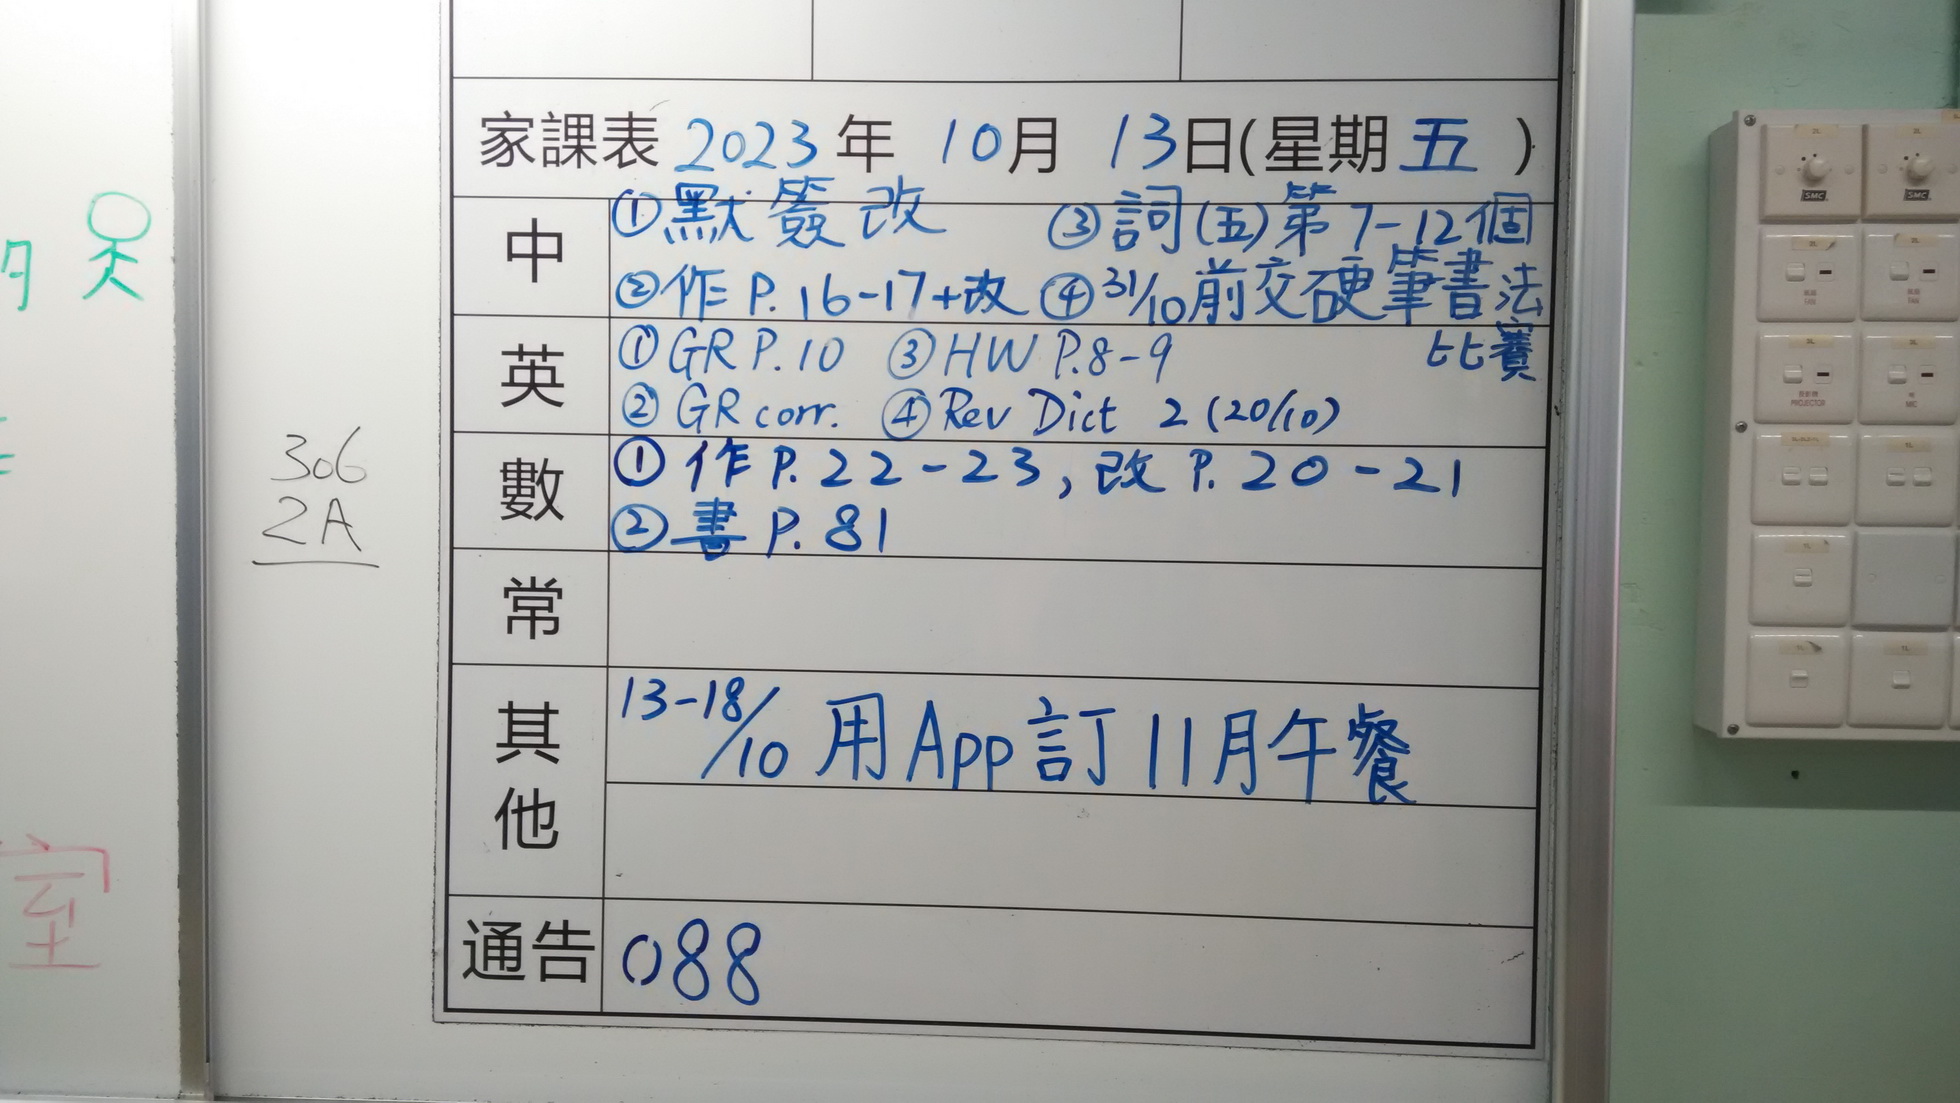 家課表 2023 年 10月 13日(星期 五 )
中
①默簽改 ③詞(五)第7-12個
②作 P.16-17+改 ④31/10前交硬筆書法
比賽
英
①GR P.10 ③HW P.8-9
②GR corr. ④Rev Dict 2 (20/10)
數
①作P.22-23,改P.20-21
②書P.81
常
其他
13-18/10 用App訂11月午餐
通告
088
306
2A
室
SMC
SMC
PROJECTOR
MIC